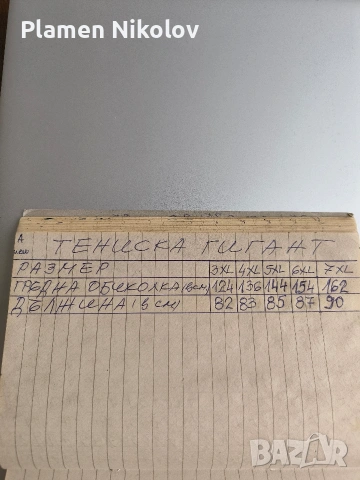 Plamen Nikolov
А
ТЕНИСКА ГИГАНТ
РАЗМЕР 3XL 4XL 5XL 6XL 7XL
ГРЪДНА ОБИКОЛКА (в см) 124 136 144 154 162
ДЪЛЖИНА (в см) 82 83 85 87 90
BAZAR
bg